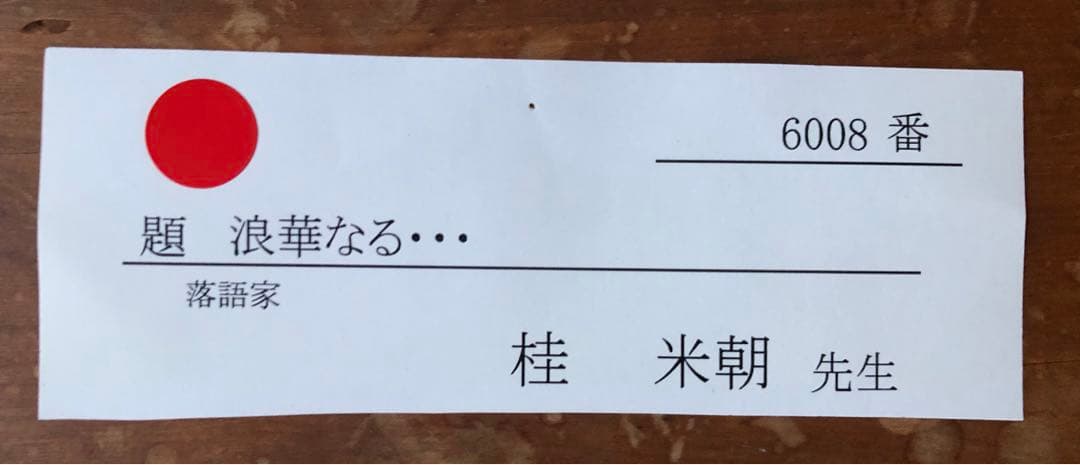 6008 番
題　浪華なる・・・
落語家
桂　米朝 先生